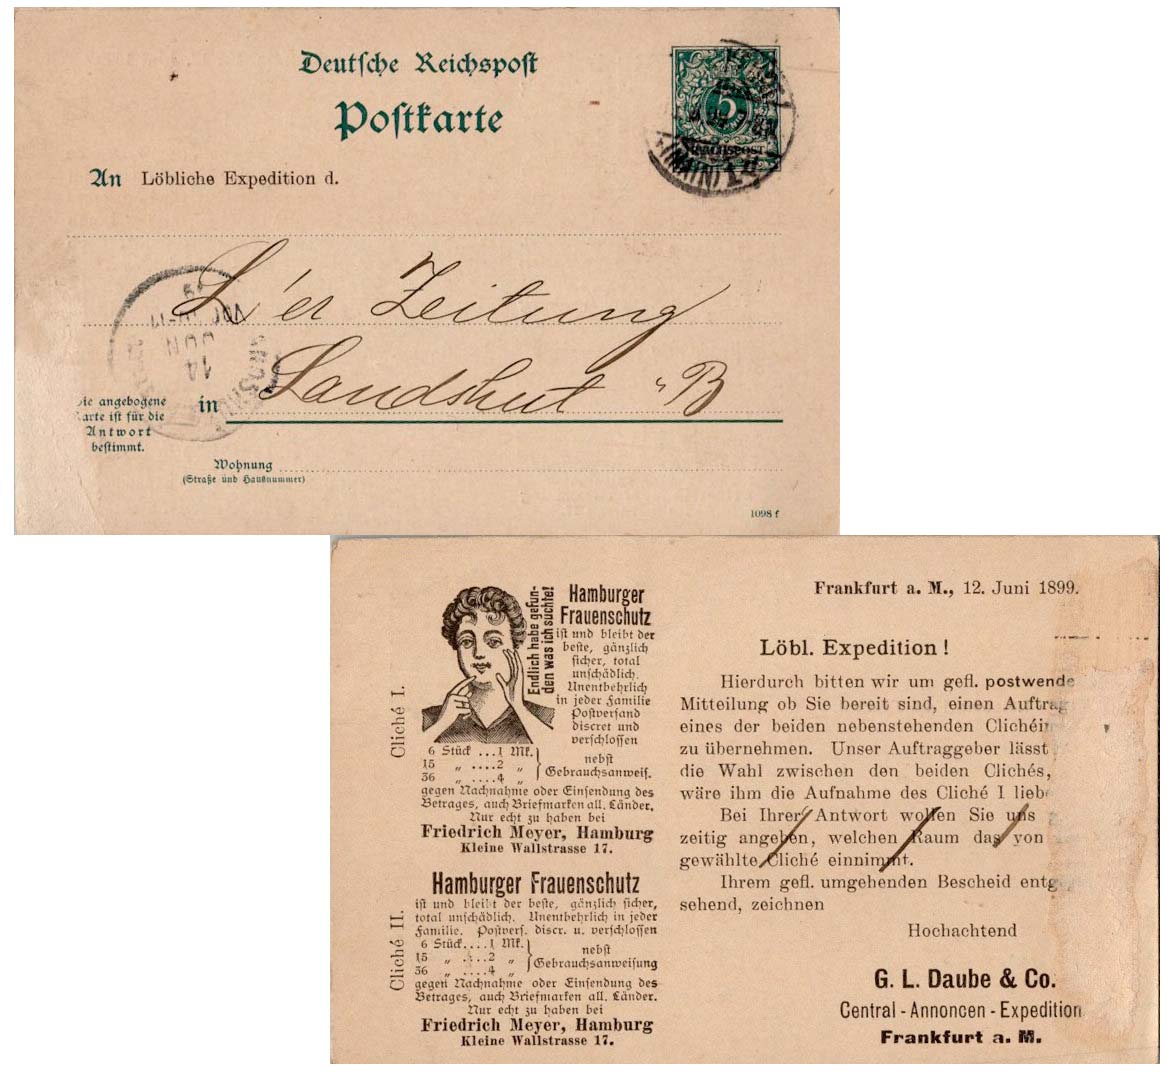 Deutsche Reichspost
Postkarte
An Löbliche Expedition d.
L'er Zeitung
in Landshut B
angebogene
Karte ist für die
Antwort
bestimmt.
Wohnung
(Straße und Hausnummer)
1098 f
5
REICHSPOST
(MAIN)
14
JUN
Frankfurt a. M., 12. Juni 1899.
Cliché I.
Endlich habe gefun-
den was ich suchte!
Hamburger
Frauenschutz
ist und bleibt der
beste, gänzlich
sicher, total
unschädlich.
Unentbehrlich
in jeder Familie
Postversand
discret und
verschlossen
6 Stück ...1 Mk.
15 „ ....2 „
36 „ ....4 „
nebst
Gebrauchsanweis.
gegen Nachnahme oder Einsendung des
Betrages, auch Briefmarken all. Länder.
Nur echt zu haben bei
Friedrich Meyer, Hamburg
Kleine Wallstrasse 17.
Cliché II.
Hamburger Frauenschutz
ist und bleibt der beste, gänzlich sicher,
total unschädlich. Unentbehrlich in jeder
Familie. Postvers. discr. u. verschlossen
6 Stück....1 Mk.
15 „ ....2 „
36 „ ....4 „
nebst
Gebrauchsanweisung
gegen Nachnahme oder Einsendung des
Betrages, auch Briefmarken all. Länder.
Nur echt zu haben bei
Friedrich Meyer, Hamburg
Kleine Wallstrasse 17.
Löbl. Expedition!
Hierdurch bitten wir um gefl. postwende
Mitteilung ob Sie bereit sind, einen Auftrag
eines der beiden nebenstehenden
zu übernehmen. Unser Auftraggeber lässt
die Wahl zwischen den beiden Clichés,
wäre ihm die Aufnahme des Cliché I lieb
Bei Ihrer Antwort wollen Sie uns
zeitig angeben, welchen Raum das von
gewählte Cliché einnimmt.
Ihrem gefl. umgehenden Bescheid entge
sehend, zeichnen
Hochachtend
G. L. Daube & Co.
Central-Annoncen-Expedition
Frankfurt a. M.